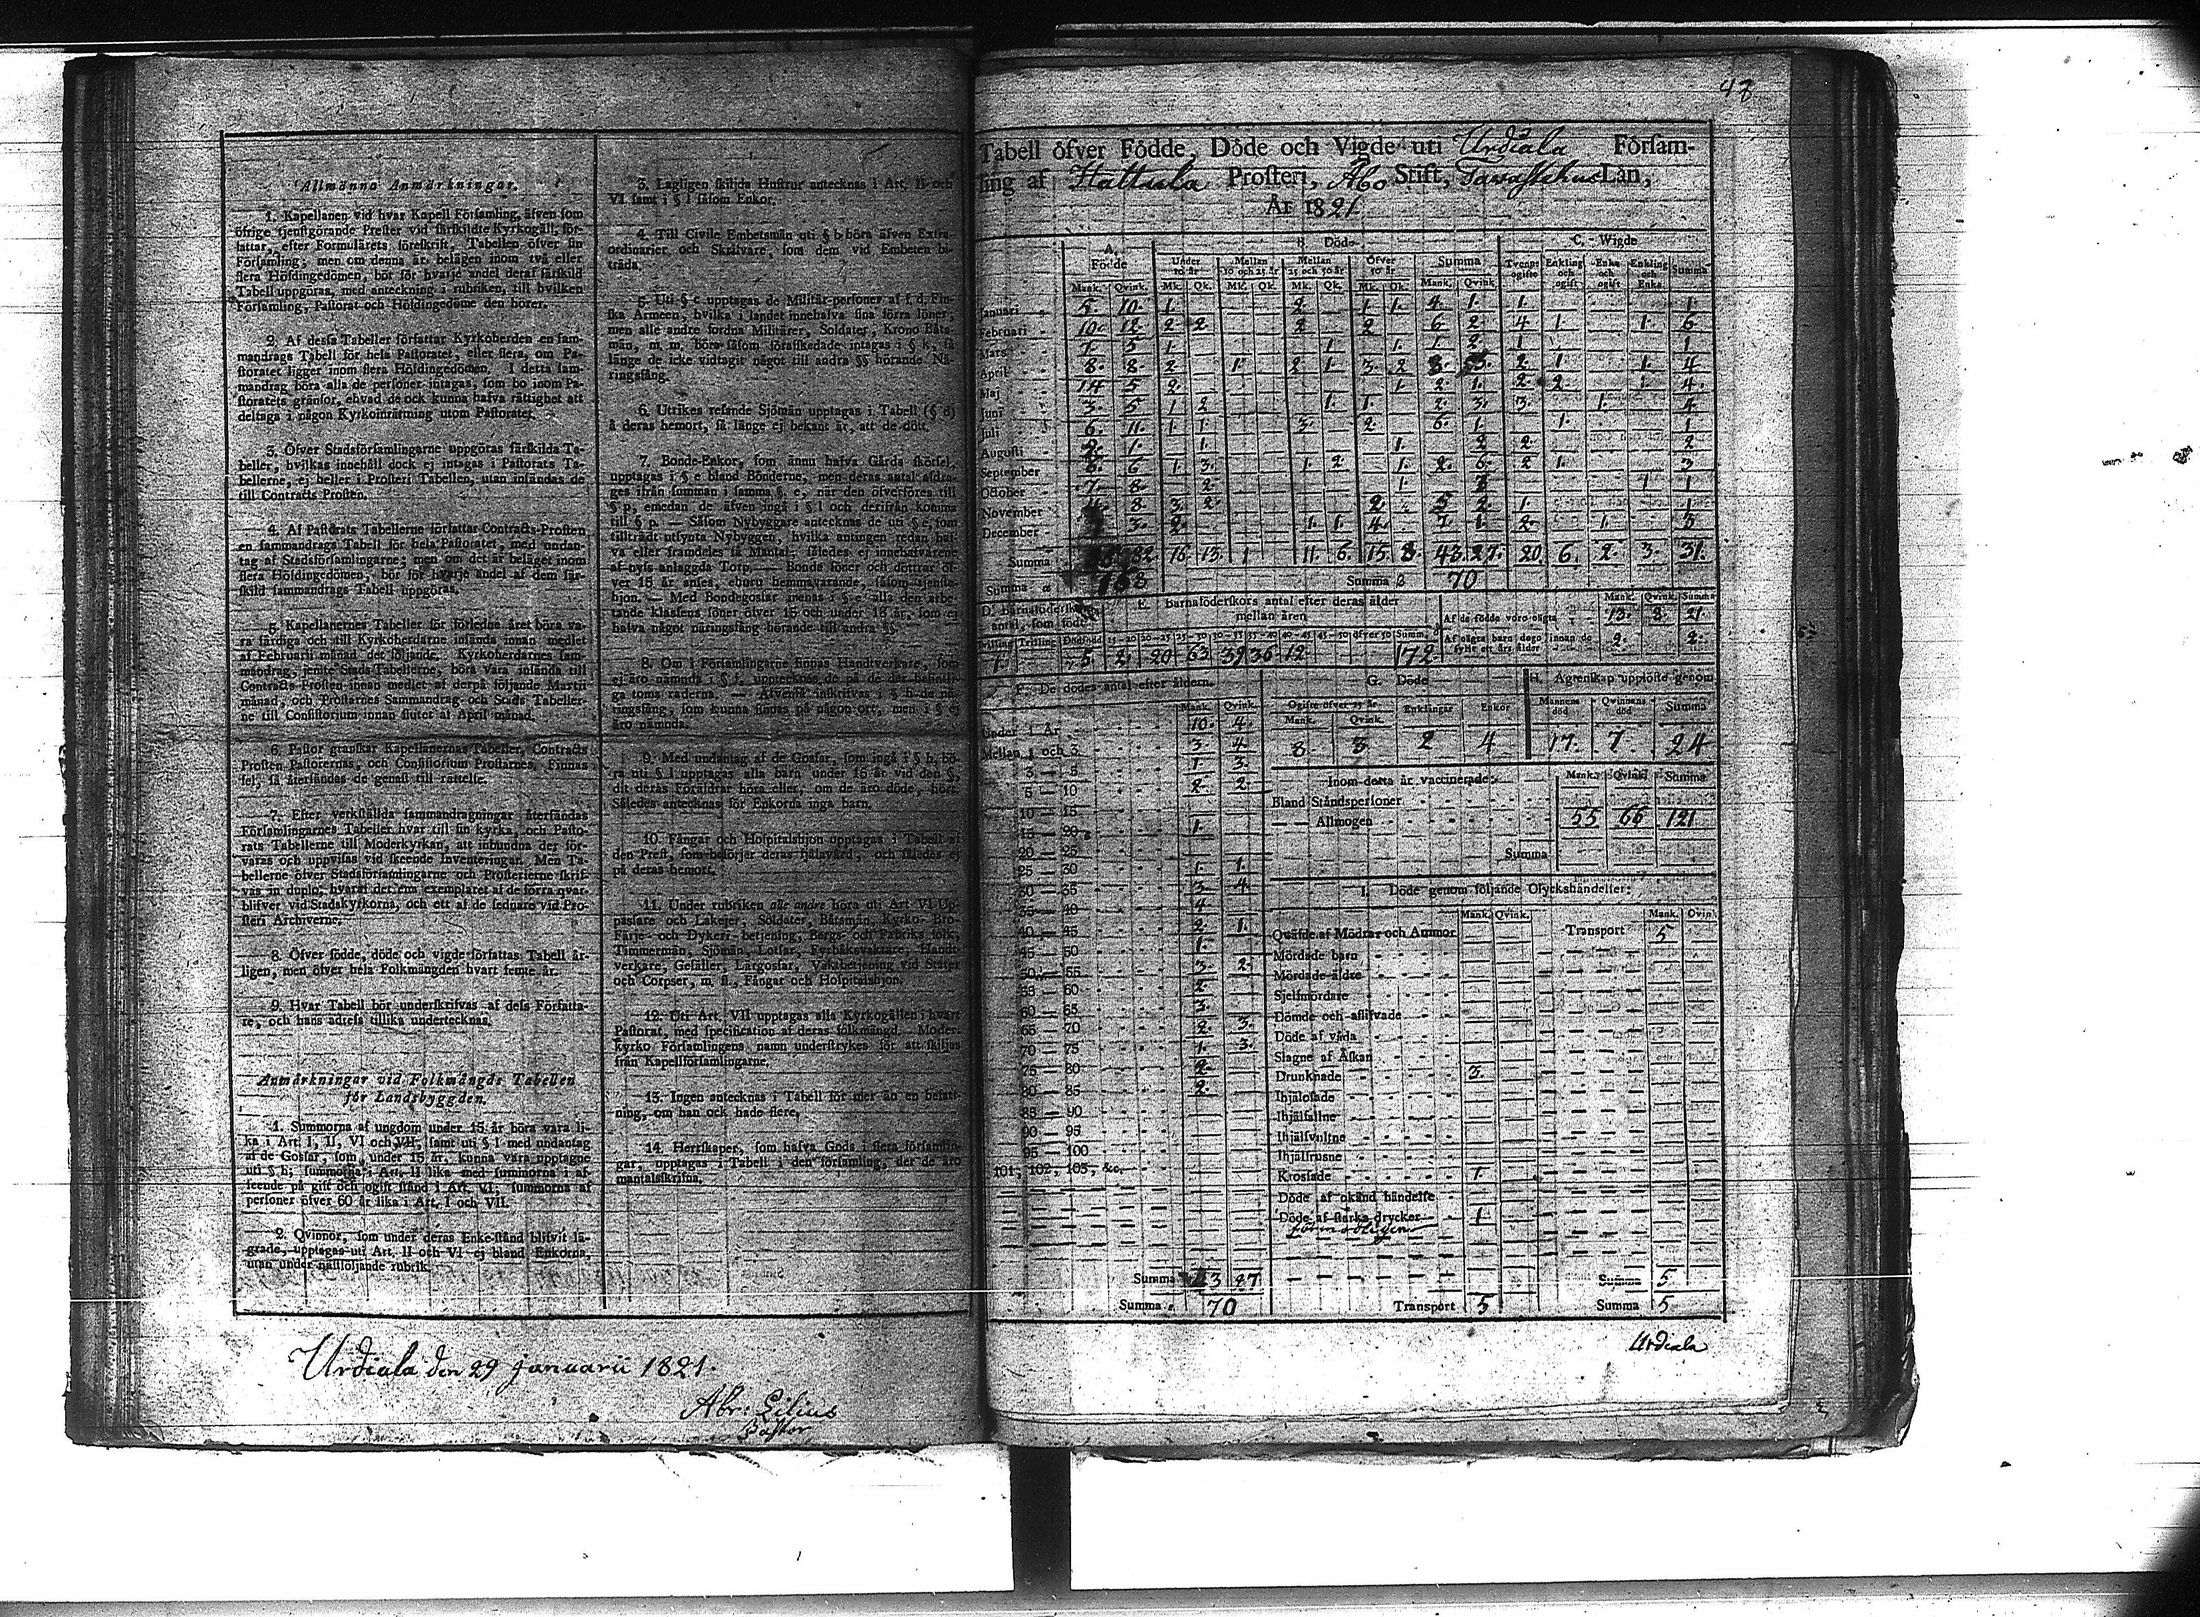 Allmänna Anmärkningar.
1. Kapellanen vid hvar Kapell Församling, äfven som
öfrige tjenstgörande Prester vid särskildte Kyrkogäll, för-
fattar, efter Formulärets föreskrift, Tabellen öfver sin
Församling; men om denna är belägen inom två eller
flera Höfdingedömen, bör för hvarje andel deraf särskild
Tabell uppgöras, med anteckning i rubriken, till hvilken
Församling, Pastorat och Höfdingedöme den hörer.
2. Af dessa Tabeller författar Kyrkoherden en sam-
mandrags Tabell för hela Pastoratet, eller flera, om Pa-
storatet ligger inom flera Höfdingedömen. I detta sam-
mandrag böra alla de personer intagas, som bo inom Pa-
storatets gränsor, ehvad de ock kunna hafva rättighet att
deltaga i någon Kyrkoinrättning utom Pastoratet.
3. Öfver Stadsförsamlingarne uppgöras särskilda Ta-
beller, hvilkas innehåll dock ej intagas i Pastorats Ta-
bellerne, ej heller i Prosteri Tabellen, utan insändas de
till Contracts Prosten.
4. Af Pastorats Tabellerne författar Contracts-Prosten
en sammandrags Tabell för hela Pastoratet, med undan-
tag af Stadsförsamlingarne; men om det är beläget inom
flera Höfdingedömen, bör för hvarje andel af dem sär-
skild sammandrags Tabell uppgöras.
5. Kapellanernes Tabeller för förledne året böra va-
ra färdiga och till Kyrkoherdarne insända innan medlet
af Februarii månad det följande. Kyrkoherdarnes sam-
mandrag, jemte Stads-Tabellerne, böra vara insända till
Contracts-Prosten innan medlet af derpå följande Martii
månad, och Prostarnes Sammandrag och Stads Tabeller-
ne till Consistorium innan slutet af April månad.
6. Pastor granskar Kapellanernas Tabeller, Contracts
Prosten Pastorernas, och Consistorium Prostarnes. Finnas
fel, så återsändas de genast till rättelse.
7. Efter verkställda sammandragningar återsändas
Församlingarnes Tabeller hvar till sin kyrka, och Pasto-
rats Tabellerne till Moderkyrkan, att inbundna der för-
varas och uppvisas vid skeende Inventeringar. Men Ta-
bellerne öfver Stadsförsamlingarne och Prosterierne skrif-
vas in duplo, hvaraf det ena exemplaret af de förra qvar-
blifver vid Stadskyrkorna, och ett af de sednare vid Pro-
steri Archiverne.
8. Öfver födde, döde och vigde författas Tabell år-
ligen, men öfver hela Folkmängden hvart femte år.
9. Hvar Tabell bör underskrifvas af dess Författa-
re, och hans adress tillika undertecknas.
Anmärkningar vid Folkmängds Tabellen
för Landsbyggden.
1. Summorna af ungdom under 15 år böra vara li-
ka i Art. I, II, VI och VII, samt uti § l med undantag
af de Gossar, som, under 15 år, kunna vara upptagne
uti § h; summorna i Art. II lika med summorna i af-
seende på gift och ogift stånd i Art. VI; summorna af
personer öfver 60 år lika i Art. I och VII.
2. Qvinnor, som under deras Enke-stånd blifvit lä-
grade, upptagas uti Art. II och VI ej bland Enkorna,
utan under nästföljande rubrik.
3. Lagligen skiljda Hustrur antecknas i Art. II och
VI samt i § l såsom Enkor.
4. Till Civile Embetsmän uti § b böra äfven Extra-
ordinarier och Skrifvare, som dem vid Embeten bi-
träda.
5. Uti § c upptagas de Militär-personer af f. d. Fin-
ska Armeen, hvilka i landet innehafva sina förra löner;
men alle andre fordna Militärer, Soldater, Krono Båts-
män, m. m. böra såsom förafskedade intagas i § k, så
länge de icke vidtagit något till andra §§ hörande Nä-
ringsfång.
6. Uttrikes resande Sjömän upptagas i Tabell (§ d)
å deras hemort, så länge ej bekant är, att de dött.
7. Bonde-Enkor, som ännu hafva Gårds skötsel,
upptagas i § e bland Bönderne, men deras antal afdra-
ges ifrån summan i samma § e, när den öfverföres till
§ p, emedan de äfven ingå i § l och derifrån komma
till § p. — Såsom Nybyggare antecknas de uti § e, som
tillträdt utsynta Nybyggen, hvilka antingen redan haf-
va eller framdeles få Mantal; således ej innehafvarene
af nyss anlaggda Torp. — Bonde söner och döttrar öf-
ver 15 år anses, ehuru hemmavarande, såsom tjenste-
hjon. — Med Bondegossar menas i § e alla den arbe-
tande klassens söner öfver 15 och under 18 år, som ej
hafva något näringsfång hörande till andra §§.
8. Om i Församlingarne finnas Handtverkare, som
ej äro nämnda i § f, upptecknas de på de der befintli-
ga toma raderna. — Äfvenså inskrifvas i § h de nä-
ringsfång, som kunna finnas på någon ort, men i § ej
äro nämnda.
9. Med undantag af de Gossar, som ingå i § h, bö-
ra uti § l upptagas alla barn under 15 år vid den §,
dit deras Föräldrar höra eller, om de äro döde, hört.
Således antecknas för Enkorna inga barn.
10. Fångar och Hospitalshjon upptagas i Tabell af
den Prest, som besörjer deras själavård, och således ej
på deras hemort.
11. Under rubriken alle andre böra uti Art VI Up-
passare och Lakejer, Soldater, Båtsmän, Kyrko- Bro-
Färje- och Dykeri- betjening, Bergs- och Fabriks folk,
Timmermän, Sjömän, Lotsar, Fyrbåksvaktare, Handt-
verkare, Gesäller, Lärgossar, Vaktbetjening vid Stater
och Corpser, m. fl., Fångar och Hospitalshjon.
12. Uti Art. VII upptagas alla Kyrkogällen i hvart
Pastorat, med specification af deras folkmängd. Moder-
kyrko Församlingens namn understrykes för att skiljas
från Kapellförsamlingarne.
13. Ingen antecknas i Tabell för mer än en befatt-
ning, om han ock hade flere.
14. Herrskaper, som hafva Gods i flera församlin-
gar, upptagas i Tabell i den församling, der de äro
mantalsskrifna.
Urdiala den 29 januarii 1821.
Abr: Lilius
Pastor
Tabell öfver Födde, Döde och Vigde uti Urdiala Församling
af Hattula Prosteri, Åbo Stift, Tavastehus Län,
År 1821
A. Födde B Döde C. Wigde
Under 10 år Mellan 10 och 25 år Mellan 25 och 50 år Öfver 50 år Summa Tvenne ogifte Enkling och ogift Enka och ogift Enkling och Enka Summa
Mank. Qvink. Mk. Qk. Mk. Qk. Mk. Qk. Mk. Qk. Mank. Qvink
Januari 5. 10. 1. 2. 1. 1. 4. 1. 1. 1.
Februari 10. 12. 2. 2. 2 2 6 2 4 1. 1. 6
Mars 5 1. 1 1. 1. 2. 1 1
April 8. 8 2 1. 2 1. 3. 2 2. 1 1. 4
Maj 14 5 2. 1. 2. 1. 2. 2 1. 4.
Juni 3. 5 1. 2 1. 1. 2. 3. 3. 1. 4
Juli 6. 11. 1. 1. 3. 2. 6. 1. 1. 1
Augusti 2. 1. 1. 1. 2 2. 2
September 6 1. 3. 1. 2. 1. 2. 6. 2 1. 3
October 7 8 2. 1. 1 1
November 8 3. 2. 2. 5 2. 1. 1.
December 3. 2. 1. 1. 4. 7. 1. 2. 1. 3
Summa 82 16. 13. 1 11. 6. 15. 8 43. 27. 20. 6. 2. 3. 31.
Summa Summa 70
D. Barnsföderskors antal, som födt
Tvilling Trilling Dödfödd
1. 5.
E. Barnaföderskors antal efter deras ålder
mellan åren
15—20 20—25 25—30 30—35 35—40 40—45 45—50 öfver 50 Summ.
2. 20 63 39 36 12. 172.
Mank. Qvink. Summa
Af de födde voro oägta 13. 8. 21
Af oägta barn dogo innan de
fyllt ett års ålder 2. 2.
F. De dödes antal efter åldern.
Mank. Qvink.
Under 1 År 10. 4.
Mellan 1 och 3 3. 4
3 — 5 1. 3.
5 — 10 2. 2
10 — 15
15 — 20 1.
20 — 25
25 — 30 1. 1.
30 — 35 3. 4
35 — 40 4.
40 — 45 2. 1.
45 — 50 1.
50 — 55 3. 2.
55 — 60 2.
60 — 65 3.
65 — 70 2. 3.
70 — 75 1. 3.
75 — 80 2.
80 — 85 2.
85 — 90
90 — 95
95 — 100
101, 102, 103, &c.
Summa 43 27
Summa 70
G. Döde
Ogifte öfver 15 år Enklingar Enkor
Mank. Qvink.
8. 3. 2 4
H. Ägtenskap upplöste genom
Mannens död Qvinnans död Summa
17. 7. 24
Inom detta år vaccinerade: Mank. Qvink. Summa
Bland Ståndspersoner
— — Allmogen 55 66 121
Summa
I. Döde genom följande Olyckshändelser:
Mank. Qvink. Mank. Qvin.
Qväfde af Mödrar och Ammor Transport 5
Mördade barn
Mördade äldre
Sjelfmördare
Dömde och aflifvade
Döde af våda
Slagne af Åskan
Drunknade 3.
Ihjälosade
Ihjälfallne
Ihjälsvultne
Ihjälfrusne
Krossade 1.
Döde af okänd händelse
Döde af starka drycker 1.
Summa 5
Transport 5 Summa 5
Urdiala